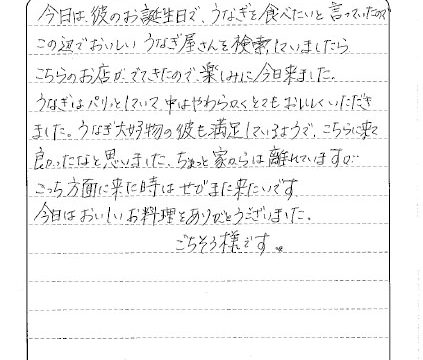 今日は、彼のお誕生日で、うなぎを食べたいと言っていたので
この辺でおいしいうなぎ屋さんを検索していましたら
こちらのお店がでてきたので、楽しみに今日来ました。
うなぎはパリッとしていて中はやわらかくとてもおいしくいただき
ました。うなぎ大好物の彼も満足しているようで、こちらに来て
良かったなと思いました。ちょっと家からは離れていますが
こっち方面に来た時はぜひまた来たいです
今日はおいしいお料理をありがとうございました。
ごちそう様です。